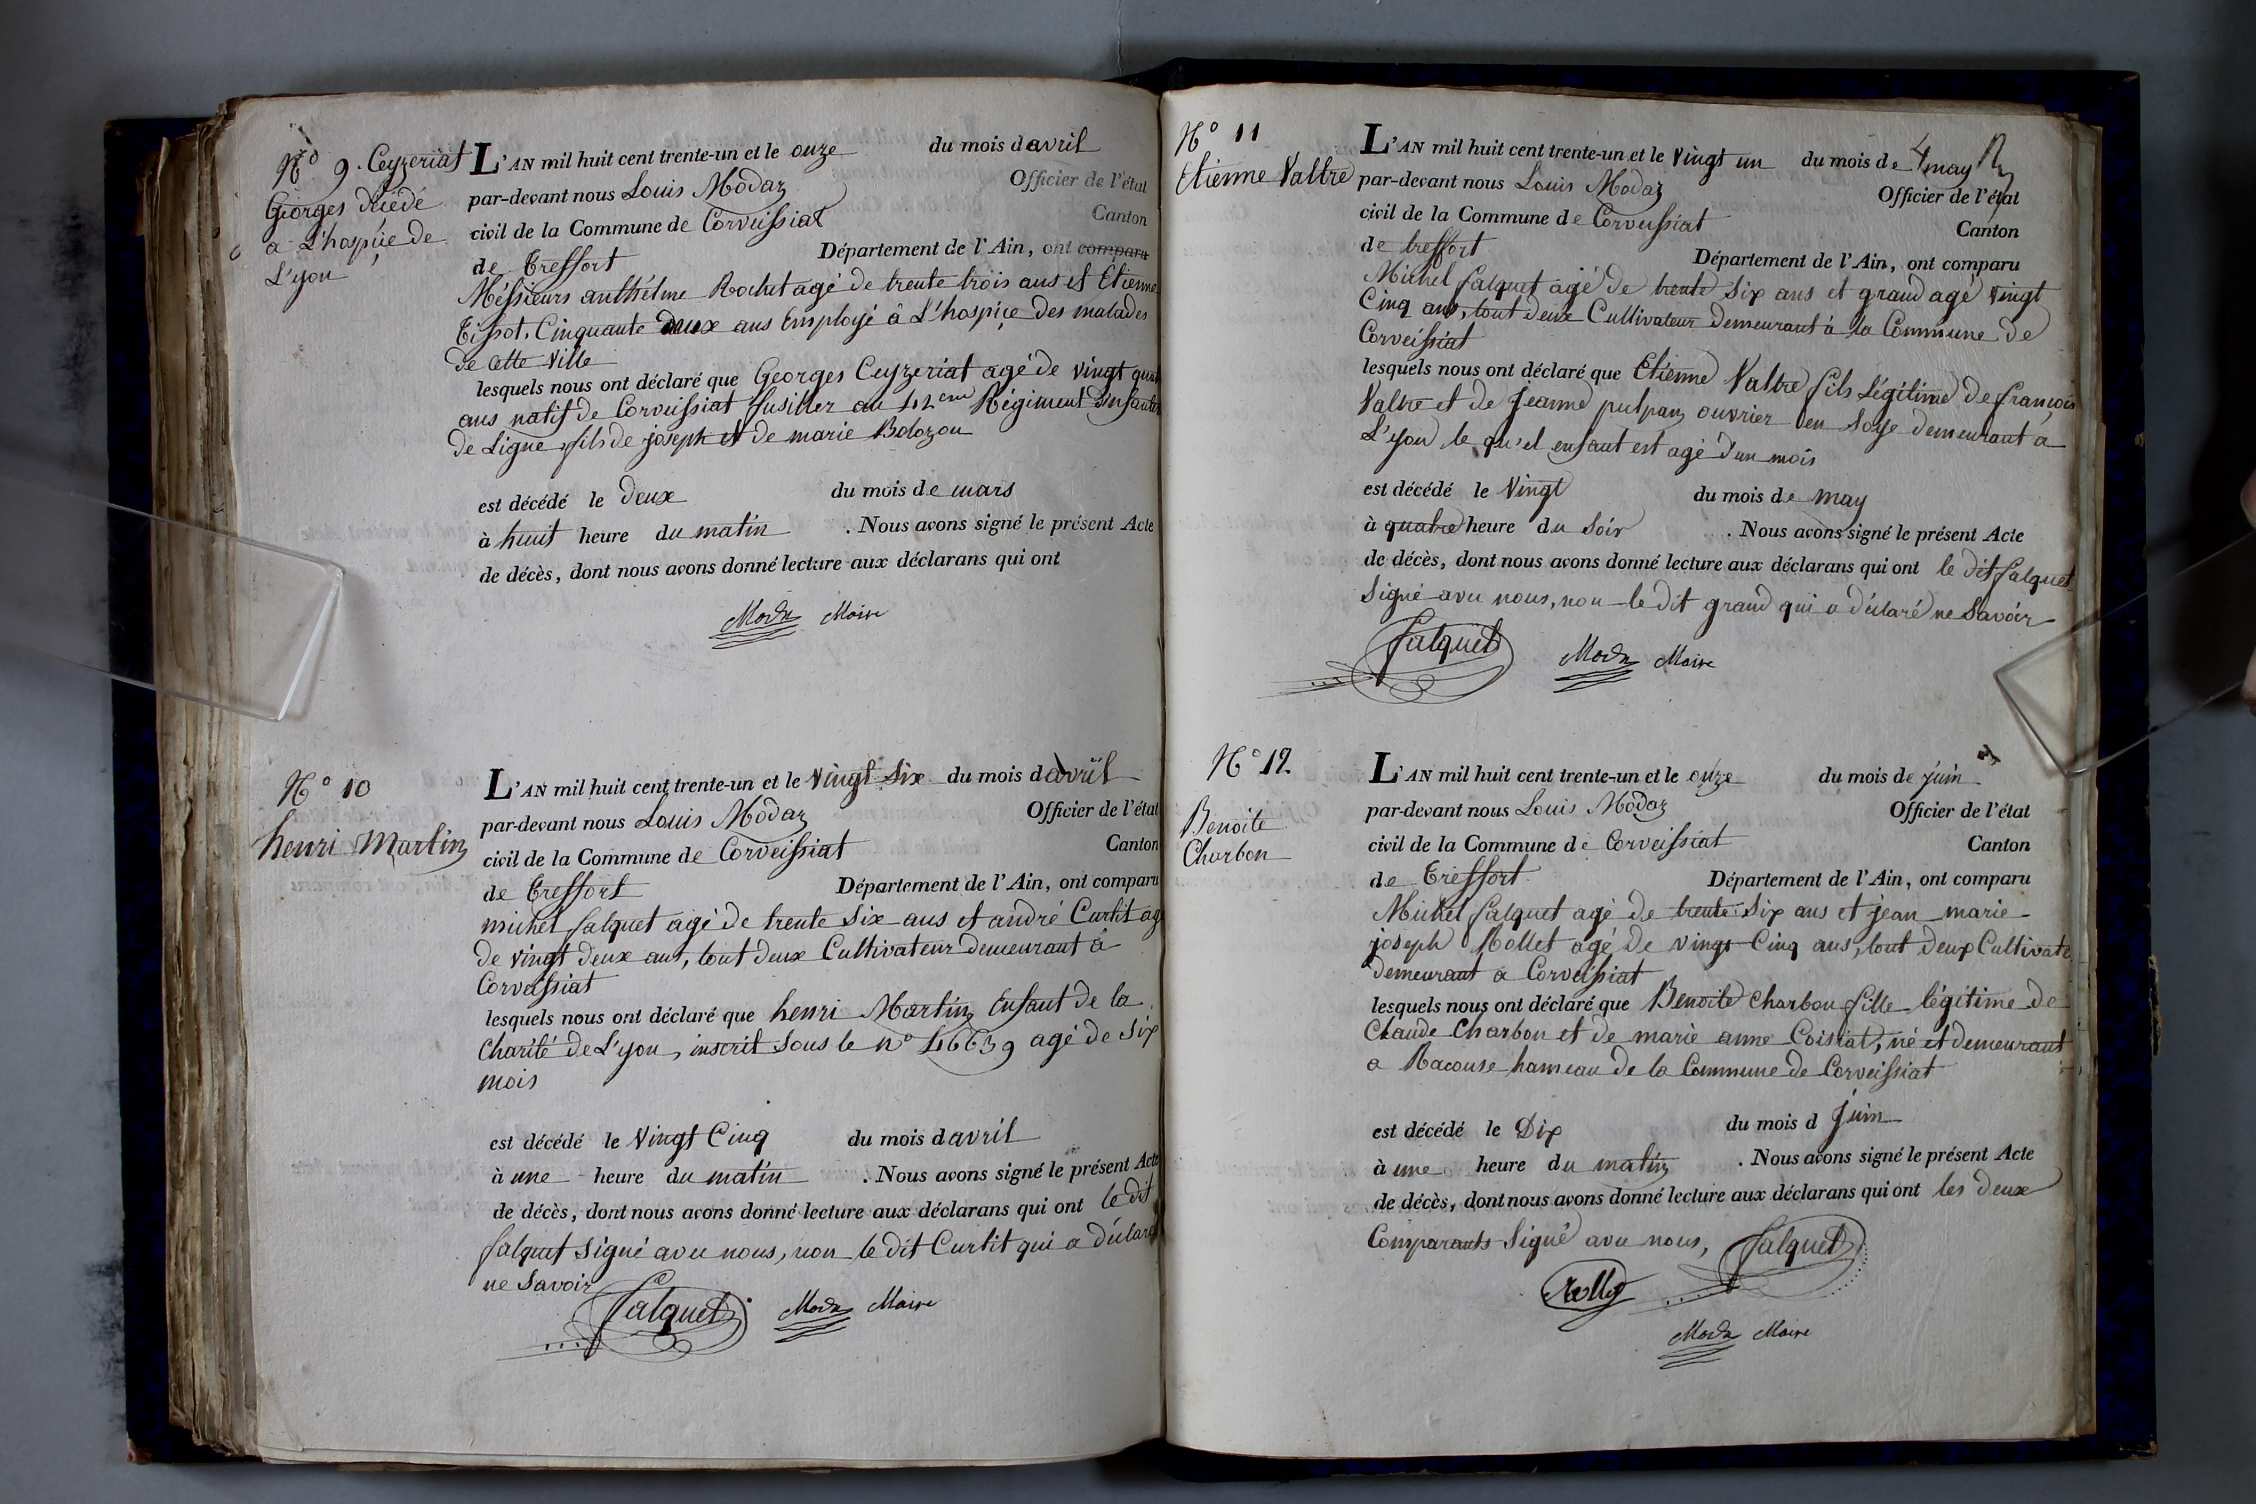 N° 9. Ceyzeriat
Georges décédé
a L'hospice de
L'yon
L'AN mil huit cent trente-un et le onze du mois d avril
par-devant nous Louis Modaz Officier de l'état
civil de la Commune de Corveissiat Canton
de Treffort Département de l'Ain, ont comparu
Méssieurs anthelme Rochet agé de trente trois ans et Etienne
Tissot, Cinquante deux ans Employé à L'hospice des malades
de cette Ville
lesquels nous ont déclaré que Georges Ceyzeriat agé de vingt quat
ans natif de Corveissiat fusilier au 42eme Régiment d'infanterie
de Ligne, fils de joseph et de marie Bolozon
est décédé le Deux du mois de mars
à huit heure du matin . Nous avons signé le présent Acte
de décès, dont nous avons donné lecture aux déclarans qui ont
Modaz Maire
N° 10
henri Martin
L'AN mil huit cent trente-un et le Vingt Six du mois d avril
par-devant nous Louis Modaz Officier de l'état
civil de la Commune de Corveissiat Canton
de Treffort Département de l'Ain, ont comparu
michel falquet agé de trente Six ans et andré Curtit ag
de vingt deux ans, tout deux Cultivateur demeurant à
Corveissiat
lesquels nous ont déclaré que henri Martin Enfant de la
Charité de L'yon, inscrit Sous le n° 46639 agé de Six
mois
est décédé le Vingt Cinq du mois d avril
à une heure du matin . Nous avons signé le présent Acte
de décès, dont nous avons donné lecture aux déclarans qui ont le dit
falquet Signé avec nous, non le dit Curtit qui a déclaré
ne Savoir
falquet Modaz Maire
N° 11
Etienne Valtre
L'AN mil huit cent trente-un et le Vingt un du mois de may
par-devant nous Louis Modaz Officier de l'état
civil de la Commune de Corveissiat Canton
de treffort Département de l'Ain, ont comparu
Michel falquet agé de trente Six ans et grand agé vingt
Cinq ans, tout deux Cultivateur demeurant à la Commune de
Corveissiat
lesquels nous ont déclaré que Etienne Valtre fils légitime de françois
Valtre et de jeanne putpan ouvrier en Soye demeurant à
L'yon le qu'el enfant est agé d'un mois
est décédé le Vingt du mois de may
à quatre heure du Soir . Nous avons signé le présent Acte
de décès, dont nous avons donné lecture aux déclarans qui ont le dit falquet
Signé avec nous, non le dit grand qui a déclaré ne Savoir
falquet Modaz Maire
N° 12.
Benoite
Charbon
L'AN mil huit cent trente-un et le onze du mois de juin
par-devant nous Louis Modaz Officier de l'état
civil de la Commune de Corveissiat Canton
de Treffort Département de l'Ain, ont comparu
Michel falquet agé de trente Six ans et jean marie
joseph Rollet agé de vingt Cinq ans, tout deux Cultivate
demeurant a Corveissiat
lesquels nous ont déclaré que Benoite Charbon fille légitime de
Claude Charbon et de marie anne Coisiat, né et demeurant
a Racouse hameau de la Commune de Corveissiat
est décédé le Dix du mois d juin
à une heure du matin . Nous avons signé le présent Acte
de décès, dont nous avons donné lecture aux déclarans qui ont les deux
Comparants Signé avec nous, falquet
Modaz Maire